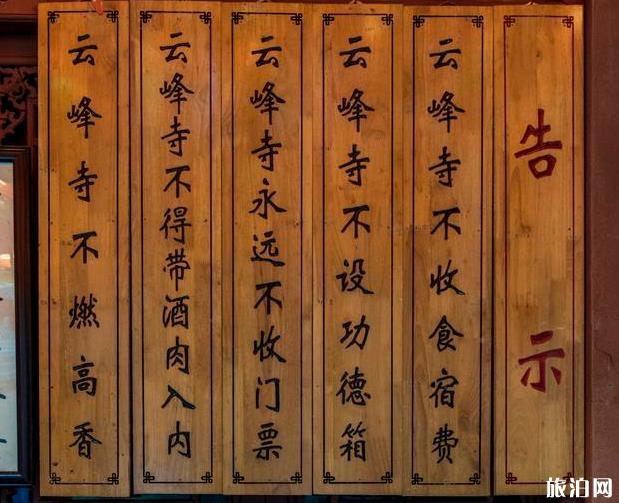 告示
云峰寺不收食宿费
云峰寺不设功德箱
云峰寺永远不收门票
云峰寺不得带酒肉入内
云峰寺不燃高香
旅泊网